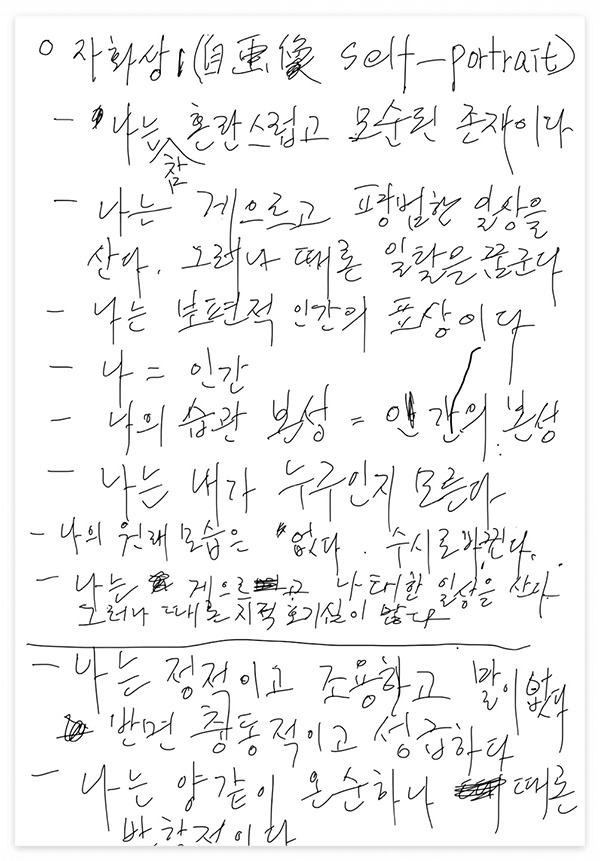 ○ 자화상:(自畵像 self-portrait)
- 나는 참 혼란스럽고 모순된 존재이다
- 나는 게으르고 평범한 일상을
산다. 그러나 때론 일탈을 꿈꾼다
- 나는 보편적 인간의 표상이다
- 나 = 인간
- 나의 습관 본성 = 인간의 본성
- 나는 내가 누구인지 모른다
- 나의 원래 모습은 없다. 수시로 바뀐다.
- 나는 게으르고 나태한 일상을 산다.
그러나 때론 지적 호기심이 많다
- 나는 정적이고 조용하고 말이 없다
반면 충동적이고 성급하다
- 나는 양같이 온순하나 때론
반항적이다